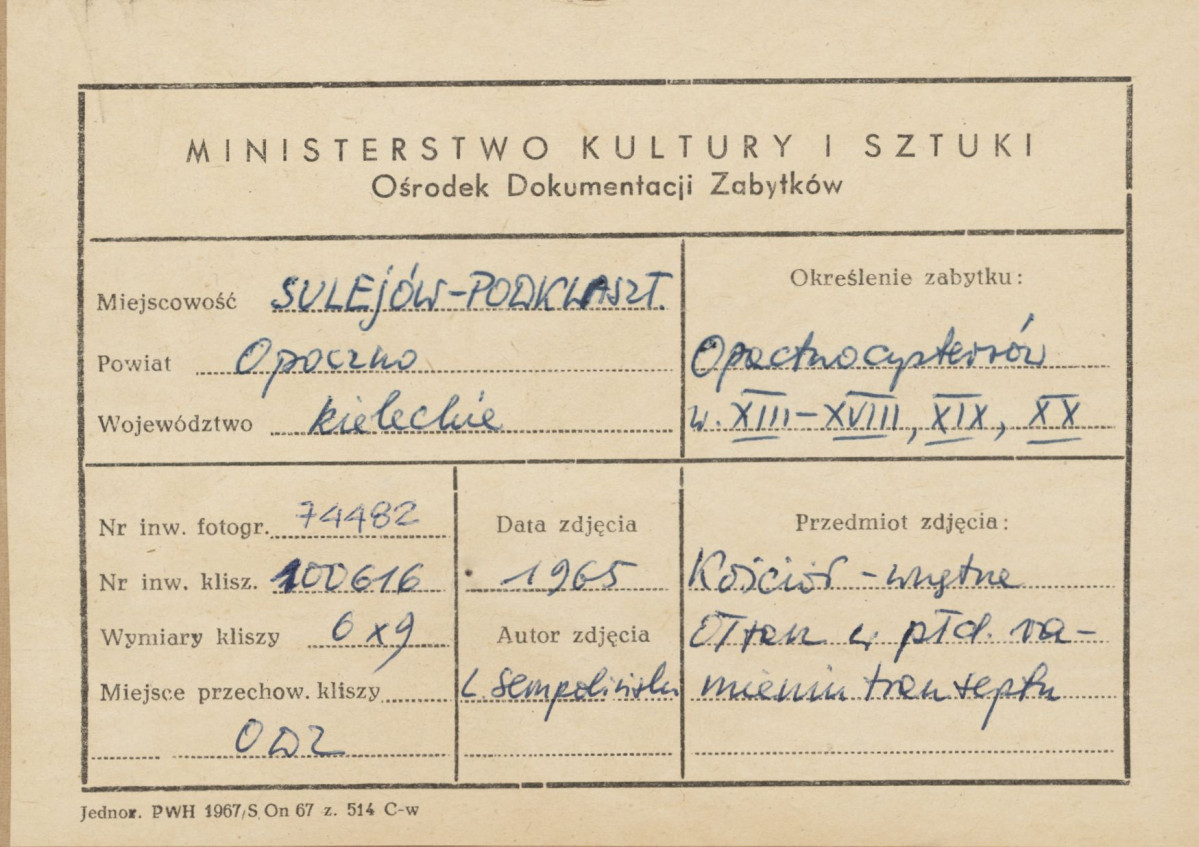 MINISTERSTWO KULTURY I SZTUKI
Ośrodek Dokumentacji Zabytków
Miejscowość SULEJÓW-PODKLASZT.
Powiat Opoczno
Województwo kieleckie
Określenie zabytku:
Opactwo cystersów
w. XIII-XVIII, XIX, XX
Nr inw. fotogr. 74482
Nr inw. klisz. 100616
Wymiary kliszy 6x9
Miejsce przechow. kliszy
ODZ
Data zdjęcia
1965
Autor zdjęcia
L. Sempoliński
Przedmiot zdjęcia:
Kościół - wnętrze
Ołtarz w płd. ra-
mieniu transeptu
Jednor. PWH 1967/S On 67 z. 514 C-w